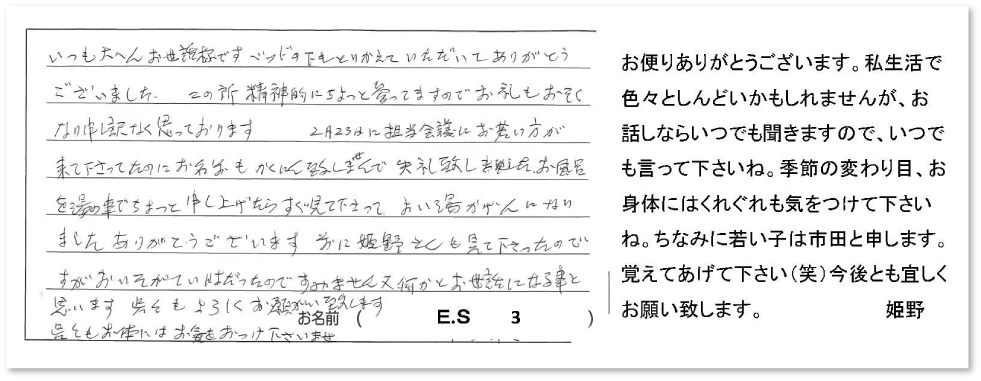 いつも大へんお世話様です ベッドの下もとりかえていただいてありがとう
ございました. この所 精神的にちょっと参ってますのでお礼もおそく
なり申し訳なく思っております 2月23日に担当会議にお若い方が
来て下さってたのにお名前もかくにん致しませんで失礼致しました. お風呂
を湯の事でちょっと申し上げたらすぐ見て下さって よい湯かげんになり
ましたありがとうございます 前に姫野さんも見て下さったので
すがおいそがでいはだったのですみません 又何かとお世話になる事と
思います 呉々もよろしくお願い致します
お名前 ( E.S 3 )
呉々もお体にはお気をおつけ下さいませ
お便りありがとうございます。私生活で
色々としんどいかもしれませんが、お
話しならいつでも聞きますので、いつで
も言って下さいね。季節の変わり目、お
身体にはくれぐれも気をつけて下さい
ね。ちなみに若い子は市田と申します。
覚えてあげて下さい(笑)今後とも宜しく
お願い致します。 姫野